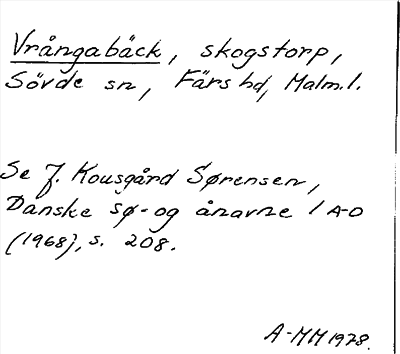 Vrångabäck, skogstorp,
Sövde sn, Färs hd, Malm.l.
Se J. Kousgård Sørensen,
Danske sø- og ånavne 1 A-D
(1968), s. 208.
A-MM 1978.